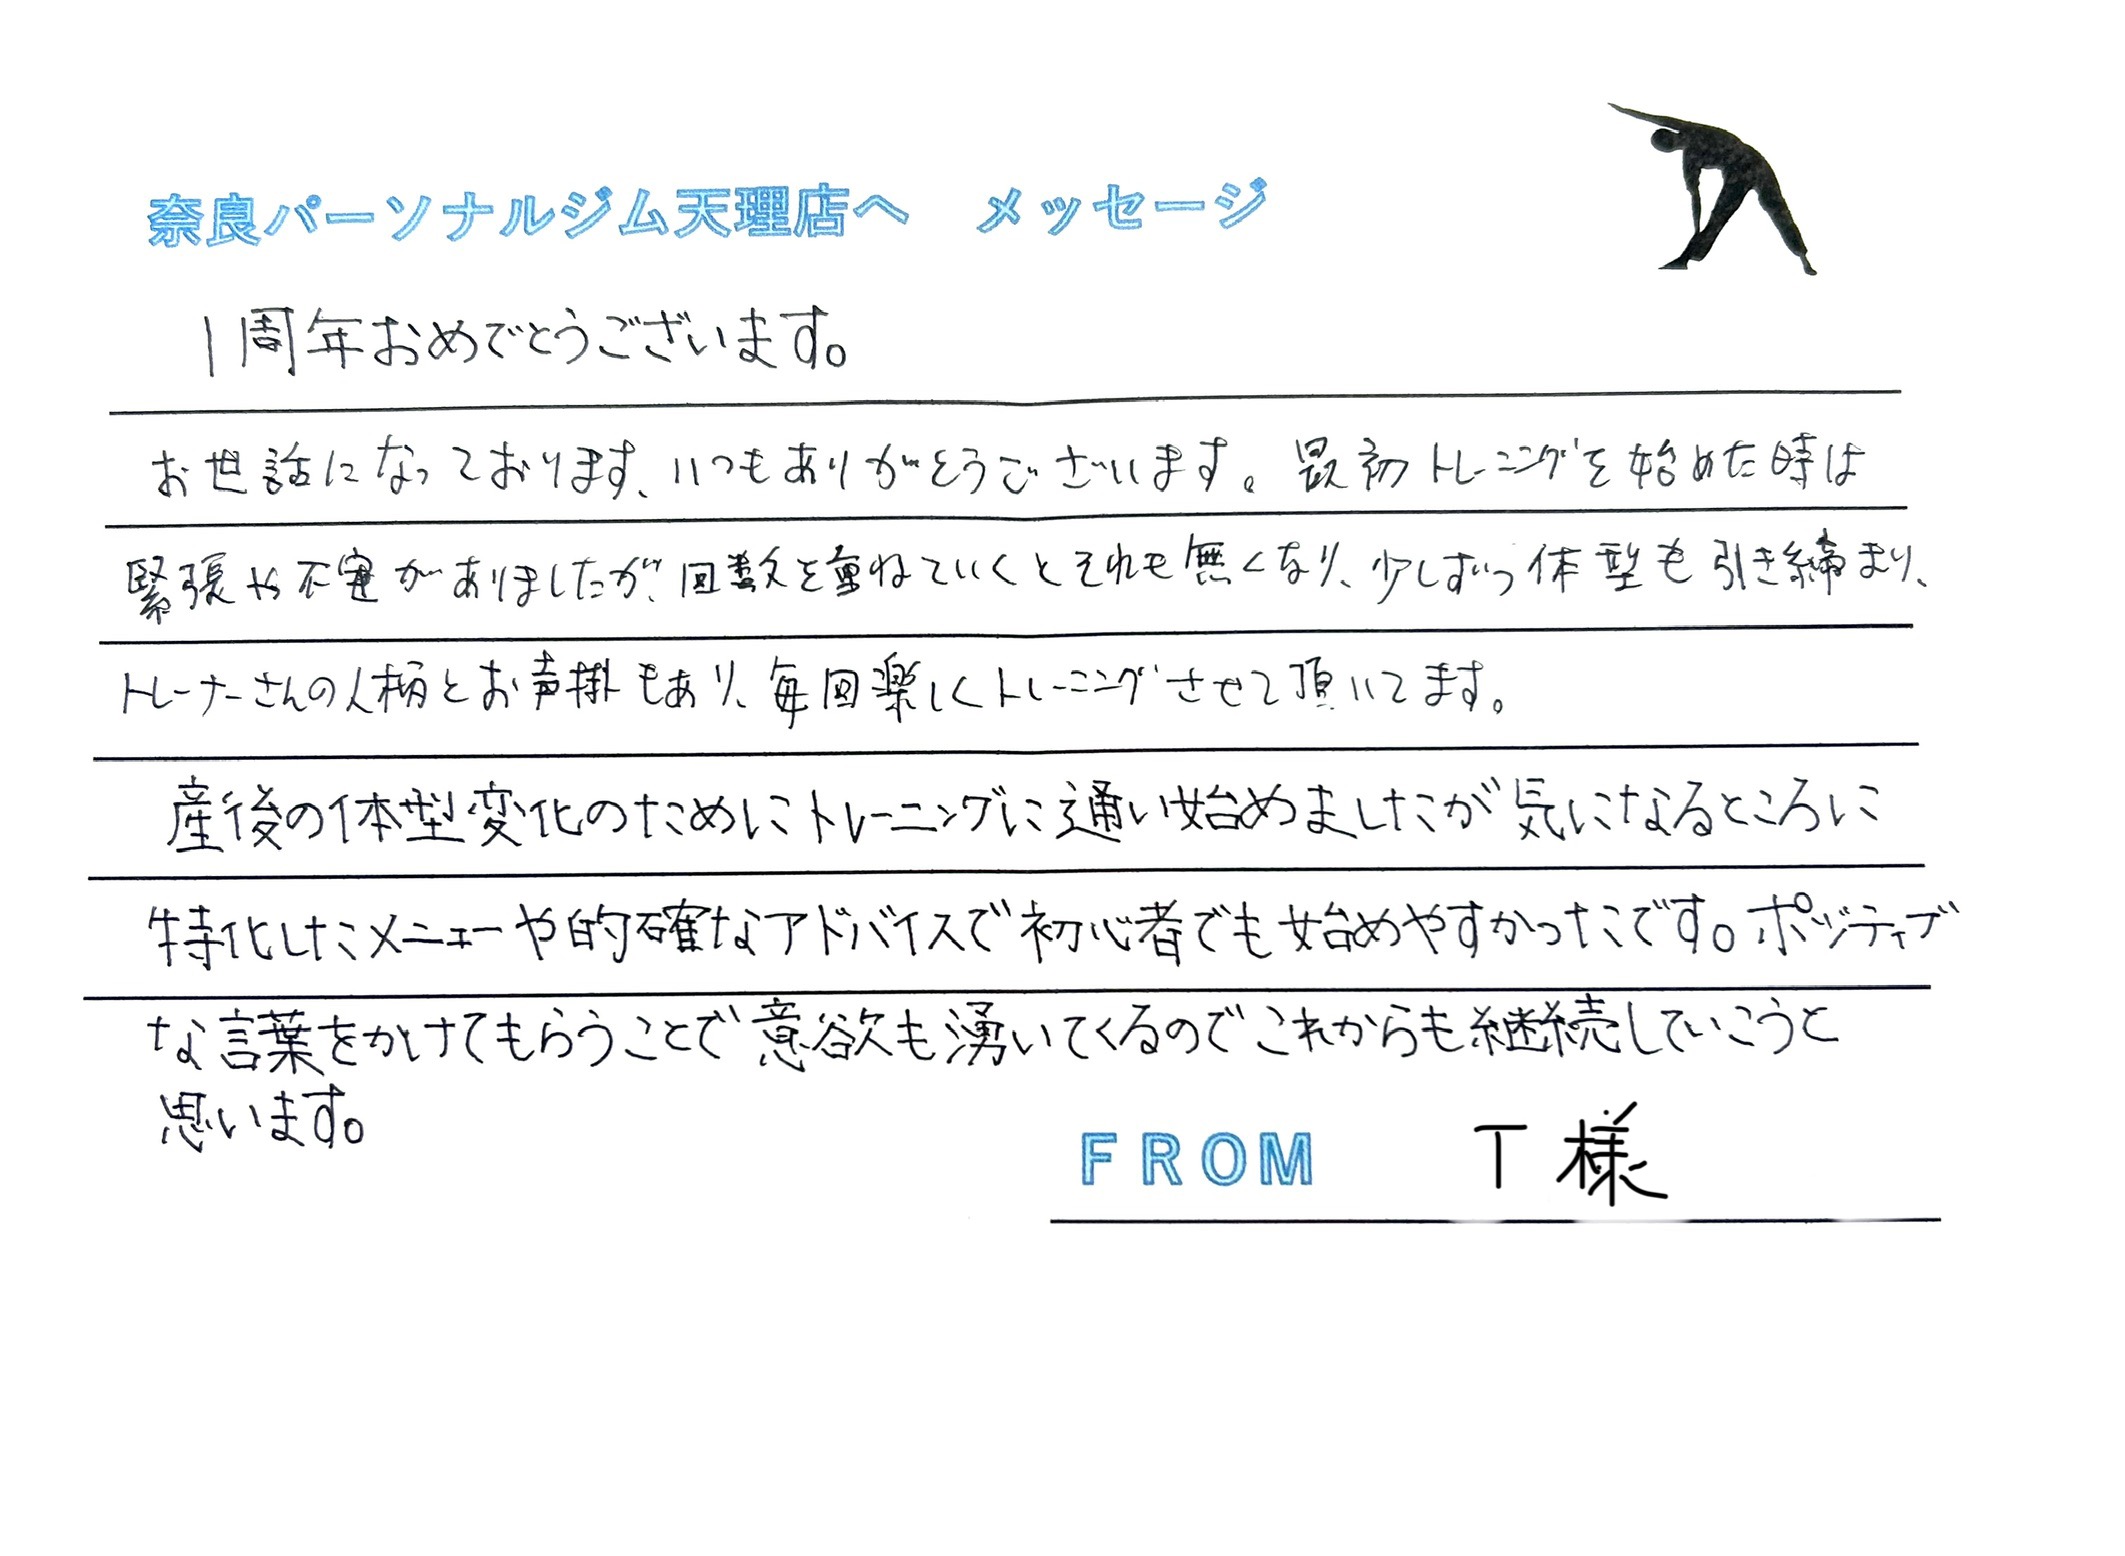 奈良パーソナルジム天理店へ　メッセージ
1周年おめでとうございます。
お世話になっております、いつもありがとうございます。最初トレーニングを始めた時は
緊張や不安がありましたが、回数を重ねていくとそれも無くなり、少しずつ体型も引き締まり、
トレーナーさんの人柄とお声掛もあり、毎回楽しくトレーニングさせて頂いてます。
産後の体型変化のためにトレーニングに通い始めましたが気になるところに
特化したメニューや的確なアドバイスで初心者でも始めやすかったです。ポジティブ
な言葉をかけてもらうことで意欲も湧いてくるのでこれからも継続していこうと
思います。
FROM　T様